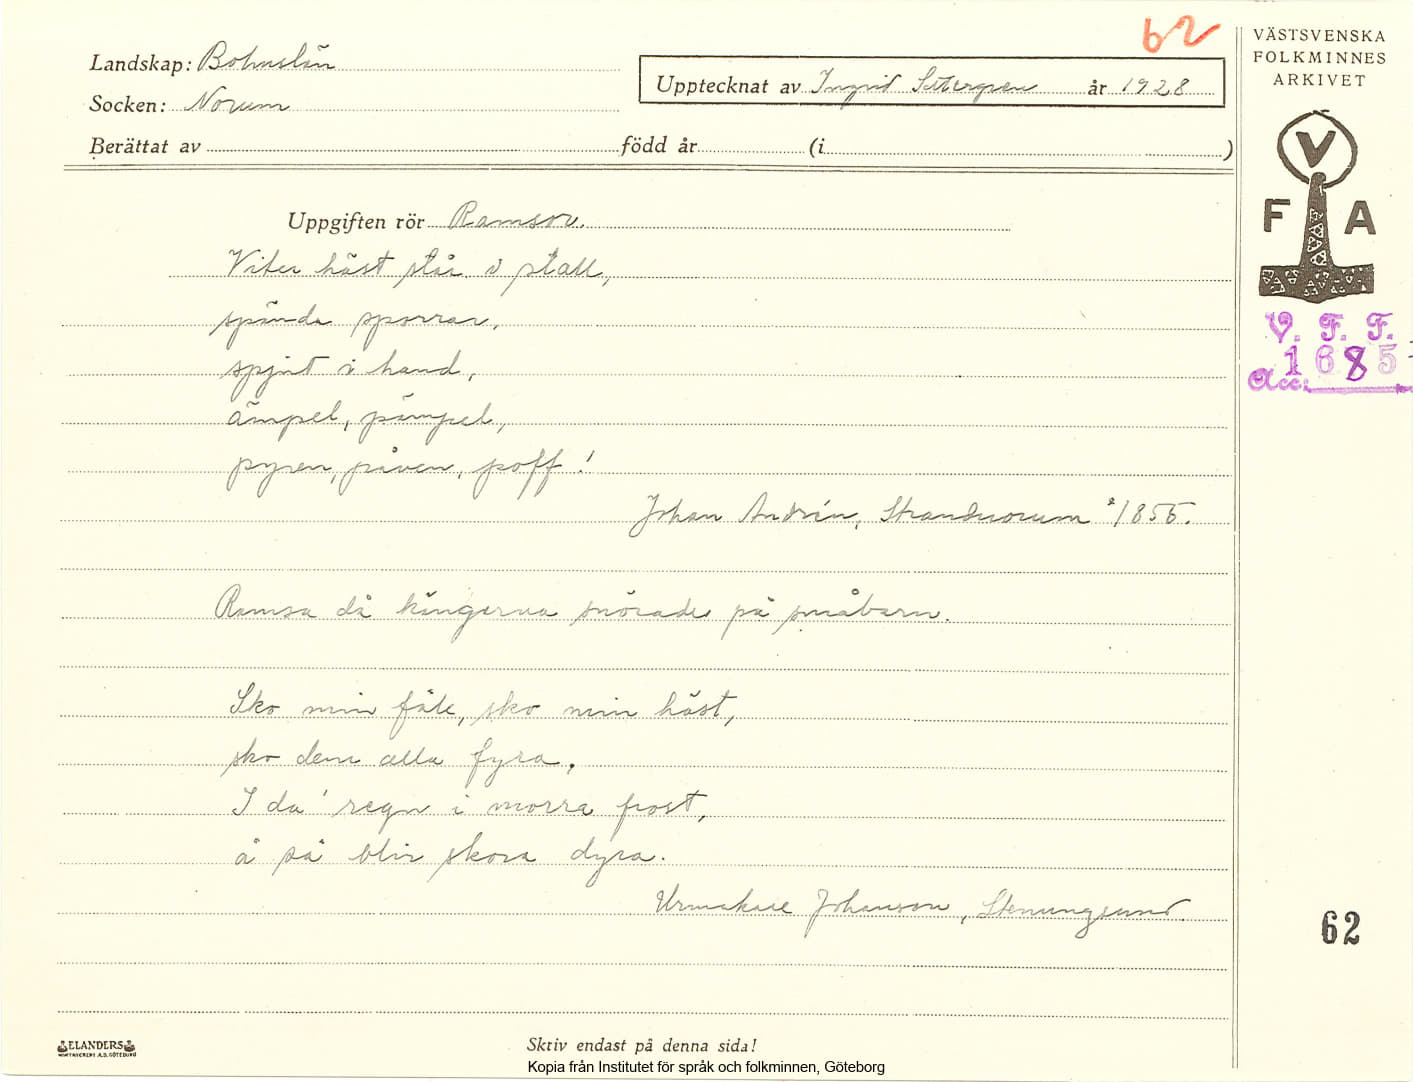 62
Landskap: Bohuslän
Socken: Norum
Upptecknat av Ingrid år 1928
Berättat av född år (i )
Uppgiften rör Ramsor.
Viter häst står i stall,
spända sporrar,
spjut i hand,
ämpel, pämpel,
pyren, påven, poff!
Johan Andrén, Strandnorum * 1855.
Ramsa då kängerna snörades på småbarn.
Sko min fåle, sko min häst,
sko dem alla fyra,
I da' regn i morra frost,
å så blir skora dyra.
Urmakare Johanson, Stenungsund.
Skriv endast på denna sida!
Kopia från Institutet för språk och folkminnen, Göteborg
ELANDERS
VÄSTSVENSKA
FOLKMINNES
ARKIVET
V
F A
V. F. F.
Acc: 1685
62